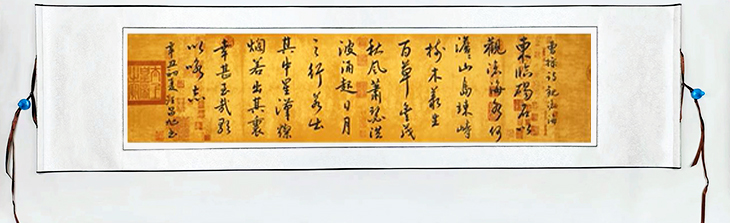 曹操詩觀滄海
東臨碣石以
觀滄海水何
澹澹山島竦峙
樹木叢生
百草豐茂
秋風蕭瑟洪
波涌起日月
之行若出
其中星漢燦
爛若出其裏
幸甚至哉歌
以詠志
辛丑初夏